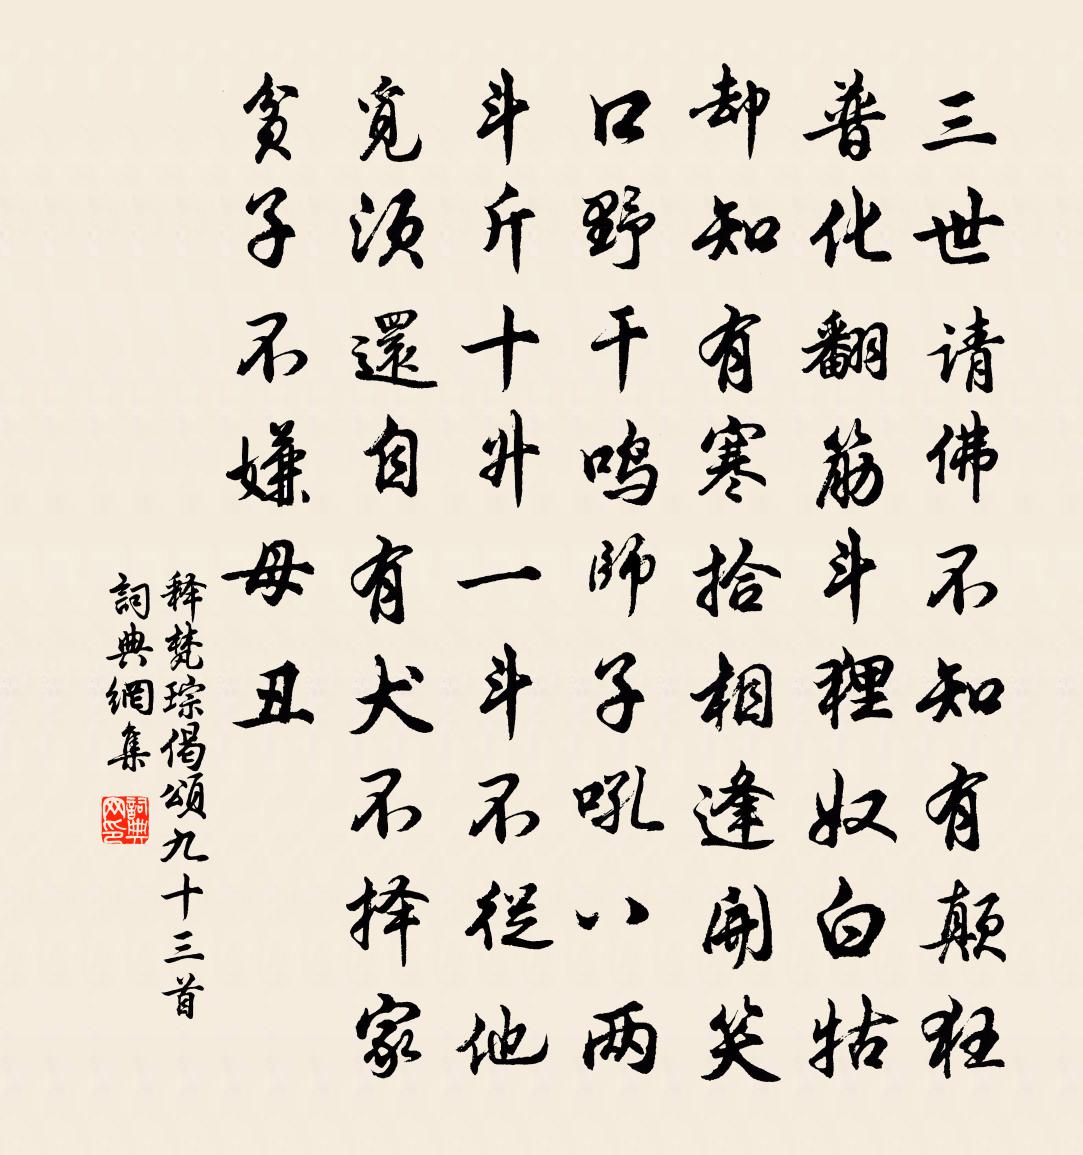 三世请佛不知有颠狂
普化翻筋斗狸奴白牯
却知有寒拾相逢開笑
口野干鸣师子吼八两
斗斤十升一斗不從他
覓须還自有犬不择家
貧子不嫌母丑
释梵琮偈頌九十三首
詞典網集
詞典网印